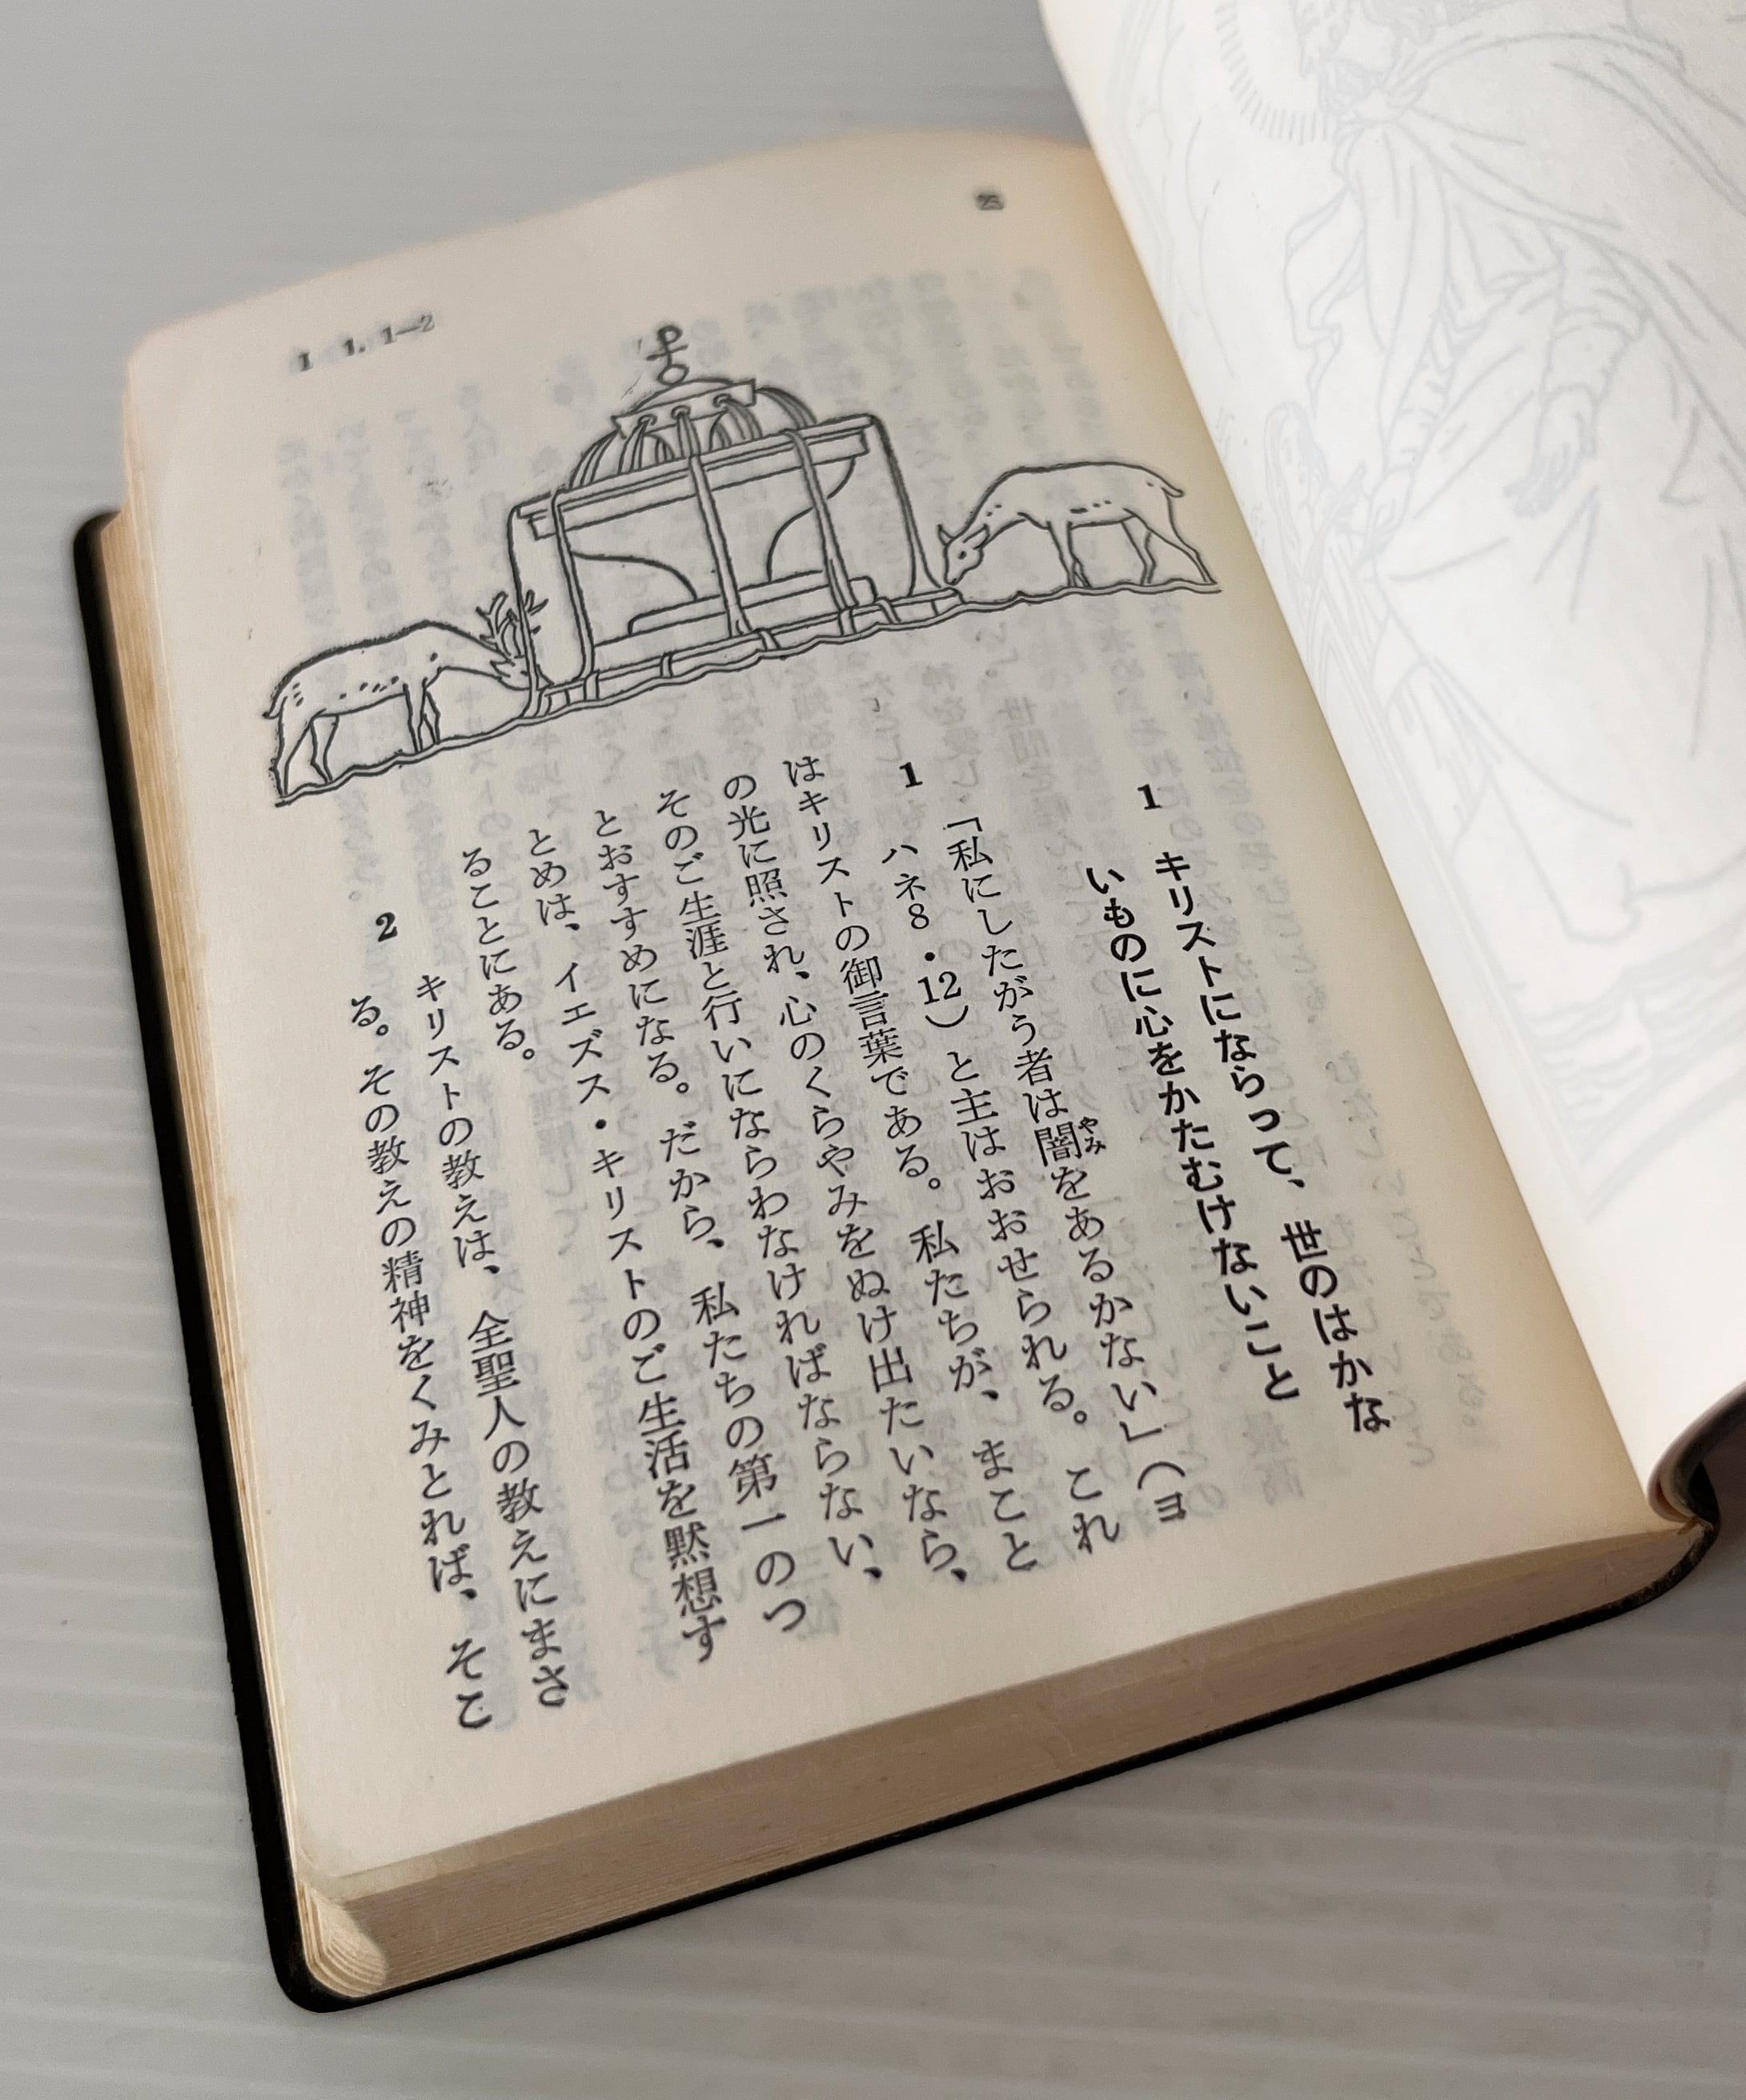 25
1 1, 1—2
1 キリストにならって、世のはかな
いものに心をかたむけないこと
1 「私にしたがう者は闇をあるかない」(ヨ
やみ
ハネ8・12)と主はおおせられる。これ
はキリストの御言葉である。私たちが、まこと
の光に照され、心のくらやみをぬけ出たいなら、
そのご生涯と行いにならわなければならない、
とおすすめになる。だから、私たちの第一のつ
とめは、イエズス・キリストのご生活を黙想す
ることにある。
2 キリストの教えは、全聖人の教えにまさ
る。その教えの精神をくみとれば、そこ